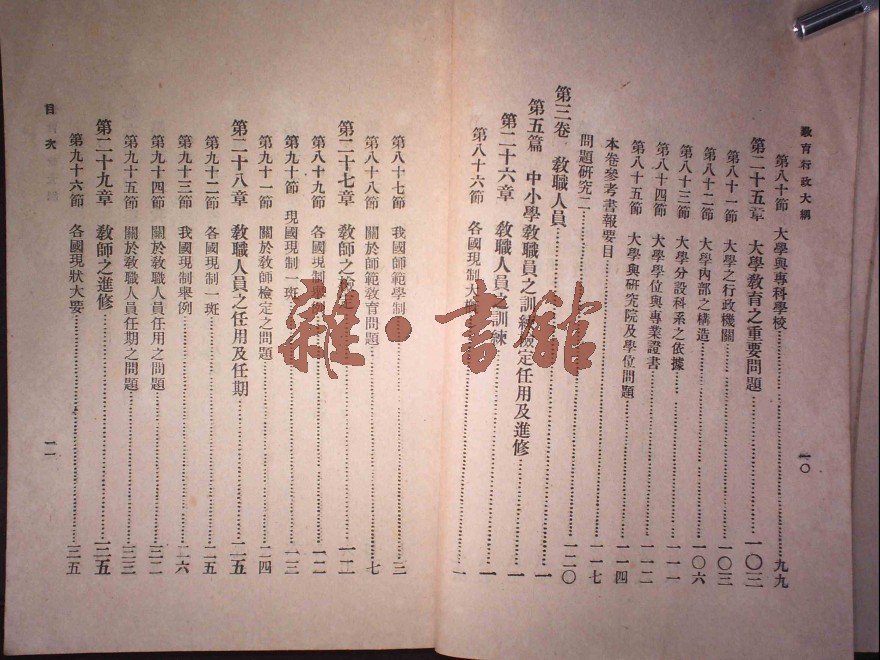 教育行政大綱
第八十節 大學與專科學校 九九
第二十五章 大學教育之重要問題 一〇三
第八十一節 大學之行政機關 一〇三
第八十二節 大學內部之構造 一〇六
第八十三節 大學分設科系之依據 一一一
第八十四節 大學學位與專業證書 一一二
第八十五節 大學與研究院及學位問題 一一四
本卷參考書報要目 一一七
問題研究二 一二〇
第三卷 教職人員
第五篇 中小學教職員之訓練檢定任用及進修 一
第二十六章 教職人員之訓練 一
第八十六節 各國現制大 一
一〇
第八十七節 我國師範學制 三
第八十八節 關於師範教育問題 七
第二十七章 教師之檢 一二
第八十九節 各國現制 一二
第九十節 現國現制一斑 一三
第九十一節 關於教師檢定之問題 二四
第二十八章 教職人員之任用及任期 二五
第九十二節 各國現制一斑 二五
第九十三節 我國現制舉例 二六
第九十四節 關於教職人員任用之問題 三二
第九十五節 關於教職人員任期之問題 三三
第二十九章 教師之進修 三五
第九十六節 各國現狀大要 三五
目次
一一
雜·書館